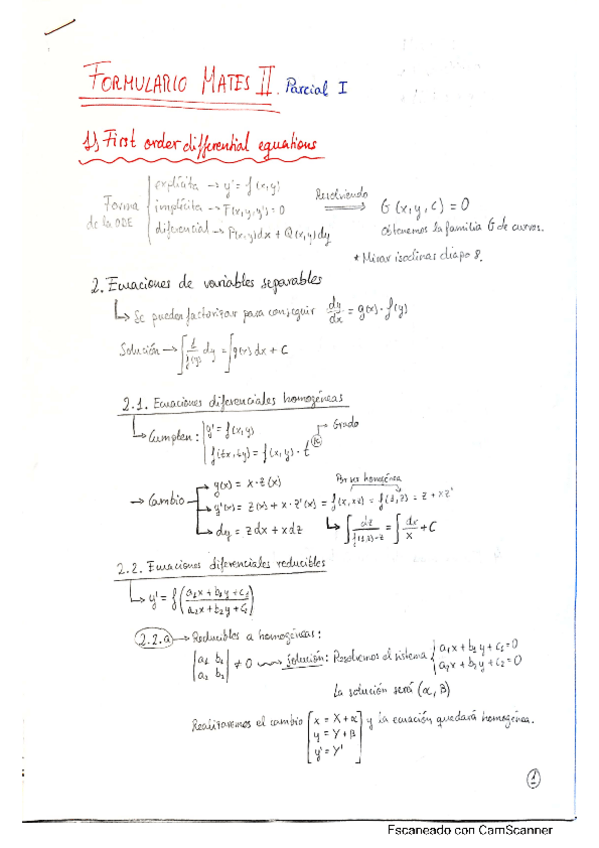 FORMULARIO MATES II. Parcial I
1) First order differential equations
Forma de la ODE
explícita → y' = f(x,y)
implícita → F(x,y,y') = 0
diferencial → P(x,y)dx + Q(x,y)dy
Resolviendo ⟹ G(x,y,C) = 0
Obtenemos la familia G de curvas.
* Mirar isoclinas diapo 8.
2. Ecuaciones de variables separables
↳ Se pueden factorizar para conseguir dy/dx = g(x)·f(y)
Solución → ∫ 1/f(y) dy = ∫ g(x) dx + C
2.1. Ecuaciones diferenciales homogéneas
↳ Cumplen: y' = f(x,y)
f(tx,ty) = f(x,y)·t^k → Grado
→ Cambio → y(x) = x·z(x)
Por ser homogénea
→ y'(x) = z(x) + x·z'(x) = f(x,xz) = f(1,z) = z + xz'
→ dy = z dx + x dz ↳ ∫ dz/(f(1,z)-z) = ∫ dx/x + C
2.2. Ecuaciones diferenciales reducibles
↳ y' = f((a₁x + b₁y + c₁)/(a₂x + b₂y + c₂))
2.2.a → Reducibles a homogéneas:
|a₁ b₁|
|a₂ b₂| ≠ 0 ⟿ Solución: Resolvemos el sistema { a₁x + b₁y + c₁ = 0
a₂x + b₂y + c₂ = 0
La solución será (α, β)
Realizaremos el cambio [x = X + α
y = Y + β
y' = Y'] y la ecuación quedará homogénea.
1
Escaneado con CamScanner